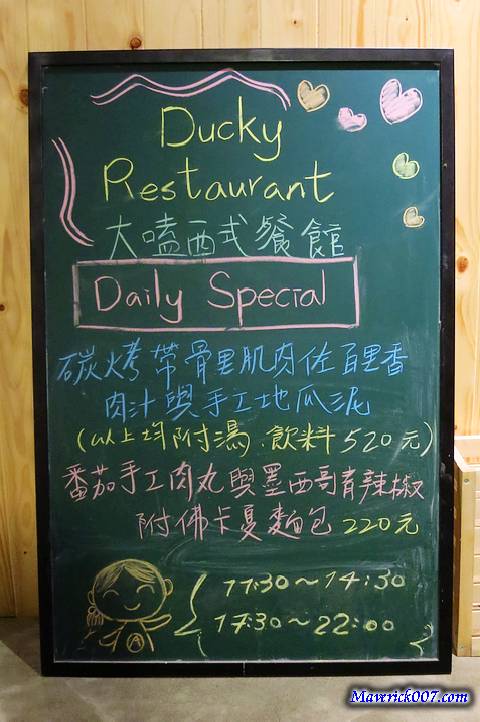 Ducky
Restaurant
大嗑西式餐館
Daily Special
碳火烤帶骨里肌肉佐百里香
肉汁與手工地瓜泥
(以上均附湯.飲料 520元)
番茄手工肉丸與墨西哥青辣椒
附佛卡夏麵包 220元
11:30～14:30
17:30～22:00
Mawrick007.com